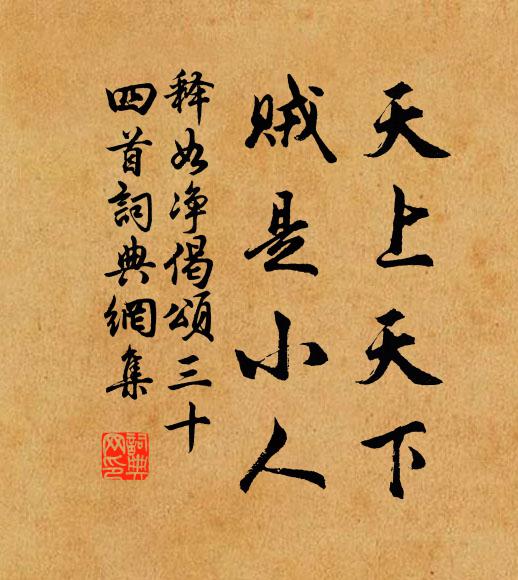 天上天下
贼是小人
释如净偈頌三十
四首詞典網集
詞典
网印